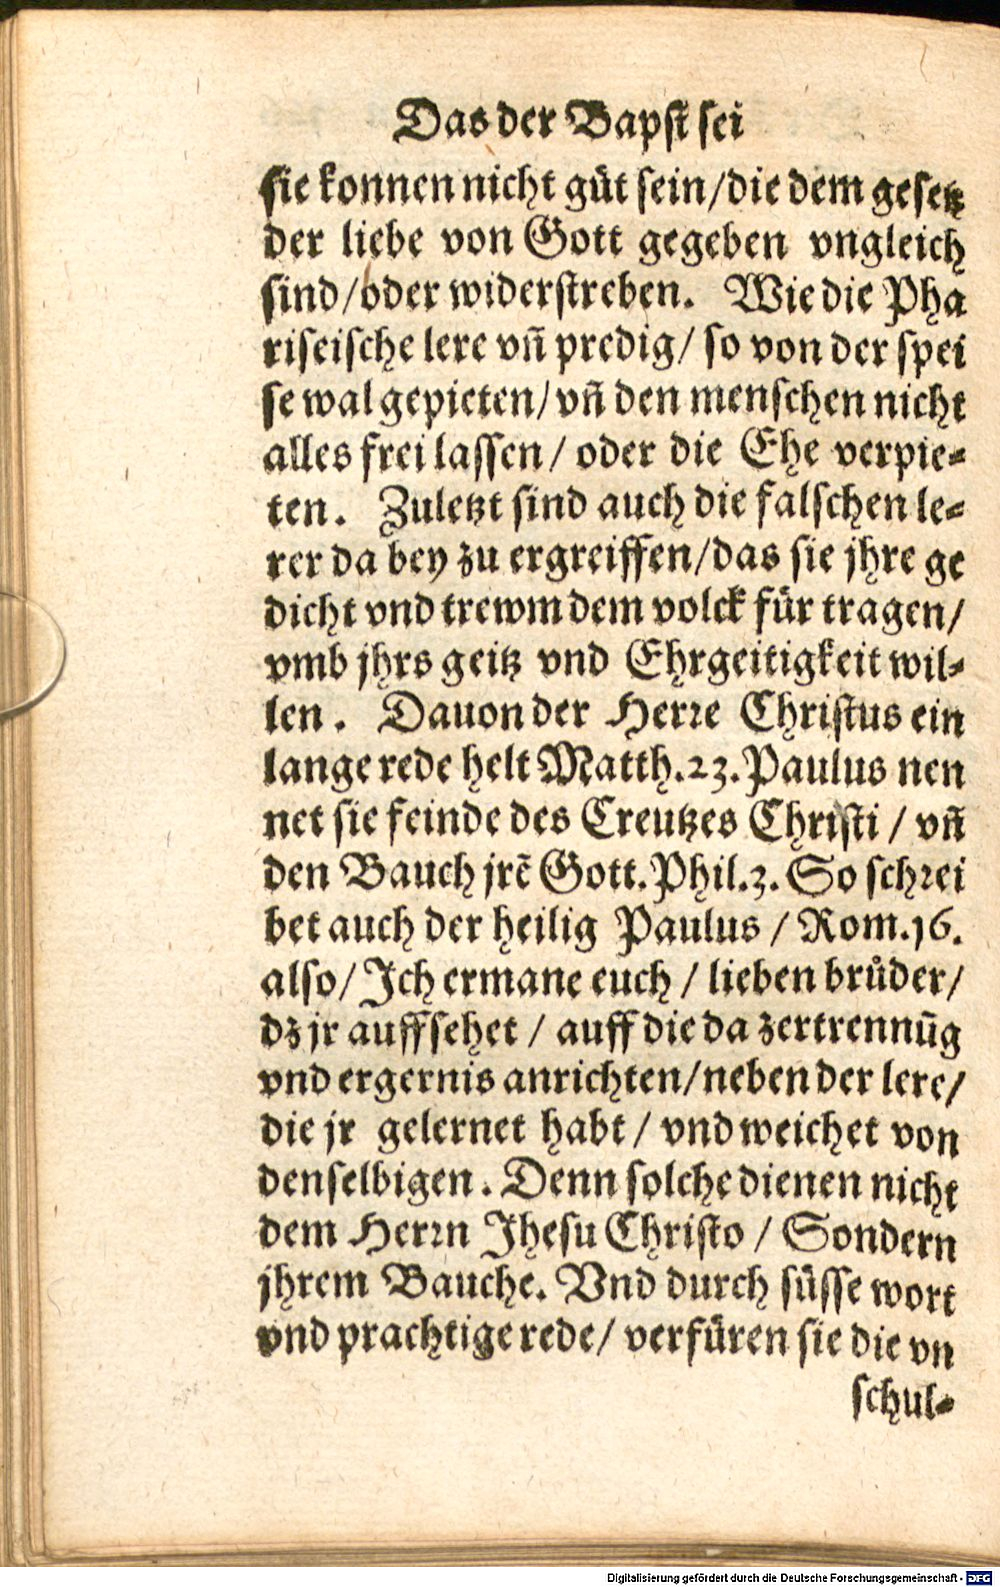 Das der Bapst sei
sie konnen nicht gůt sein/die dem gesetz
der liebe von Gott gegeben vngleich
sind/oder widerstreben. Wie die Pha
riseische lere vñ predig/ so von der spei
se wal gepieten/vñ den menschen nicht
alles frei lassen/ oder die Ehe verpie-
ten. Zuletzt sind auch die falschen le-
rer da bey zu ergreiffen/das sie jhre ge
dicht vnd trewm dem volck für tragen/
vmb jhrs geitz vnd Ehrgeitigkeit wil-
len. Dauon der Herre Christus ein
lange rede helt Matth.23. Paulus nen
net sie feinde des Creutzes Christi / vñ
den Bauch jrẽ Gott. Phil.3. So schrei
bet auch der heilig Paulus / Rom.16.
also/ Ich ermane euch / lieben brůder/
dz jr auffsehet / auff die da zertrennũg
vnd ergernis anrichten/neben der lere/
die jr gelernet habt / vnd weichet von
denselbigen. Denn solche dienen nicht
dem Herrn Jhesu Christo / Sondern
jhrem Bauche. Vnd durch süsse wort
vnd prachtige rede/ verfüren sie die vn
schul-
Digitalisierung gefördert durch die Deutsche Forschungsgemeinschaft - DFG